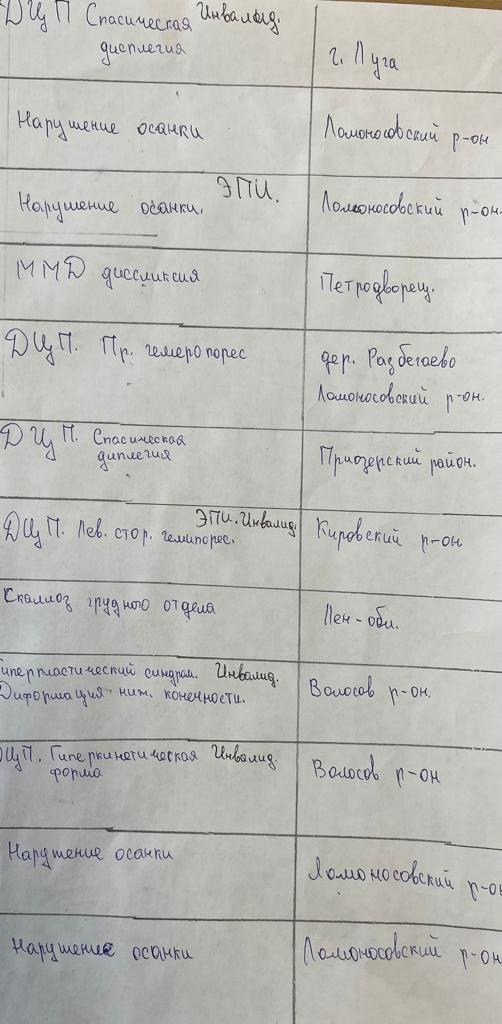 ДЦП Спасическая Инвалид.
дисплегия
г. Луга
Нарушение осанки
Ломоносовский р-он
Нарушение осанки. ЭПИ.
Ломоносовский р-он.
ММД дисслексия
Петродворец.
ДЦП. Пр. гемеропорес
дер. Разбегаево
Ломоносовский р-он.
ДЦП. Спасическая
диплегия
Приозерский район.
ЭПИ. Инвалид.
ДЦП. Лев. стор. гемипорес.
Кировский р-он
Скалиоз грудного отдела
Лен-обл.
Гиперпластический синдром. Инвалид.
Диформация ниж. конечности.
Волосов р-он.
ДЦП. Гиперкинетическая Инвалид.
форма
Волосов р-он
Нарушение осанки
Ломоносовский р-он
Нарушение осанки
Ломоносовский р-он